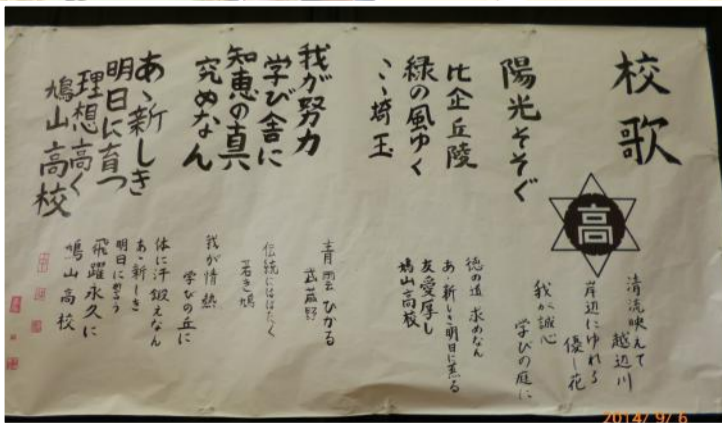 校歌
陽光そそぐ
比企丘陵
緑の風ゆく
こゝ埼玉
我が努力
学び舎に
知恵の真
究めなん
あゝ新しき
明日に育つ
理想高く
鳩山高校
高
清流映えて
越辺川
岸辺にゆれる
優し花
我が誠心
学びの庭に
徳の道 求めなん
あゝ新しき明日に薫る
友愛厚し
鳩山高校
青雲ひかる
武蔵野
伝統にはばたく
若き鳩
我が情熱
学びの丘に
体に汗 鍛えなん
あゝ新しき
明日に誓う
飛躍永久に
鳩山高校
2014/ 9/ 6